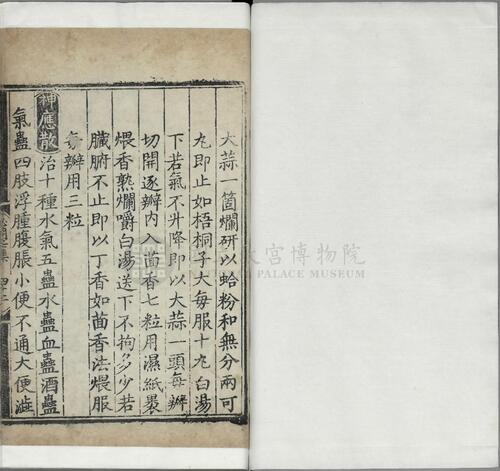 大蒜一箇爛研以蛤粉和無分兩可
丸即止如梧桐子大每服十丸白湯
下若氣不升降即以大蒜一頭每瓣
切開逐瓣内入茴香七粒用濕紙裹
煨香熟爛嚼白湯送下不拘多少若
臟腑不止即以丁香如茴香法煨服
每瓣用三粒
神應散 治十種水氣五蠱水蠱血蠱酒蠱
氣蠱四肢浮腫腹脹小便不通大便澁
宮博物院
PALACE MUSEUM